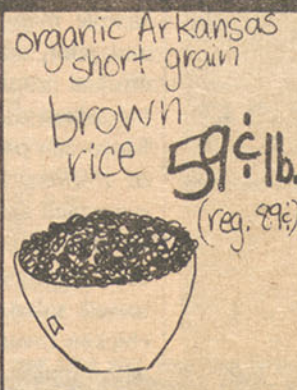 organic Arkansas
short grain
brown
rice 59¢ lb.
(reg. 89¢)